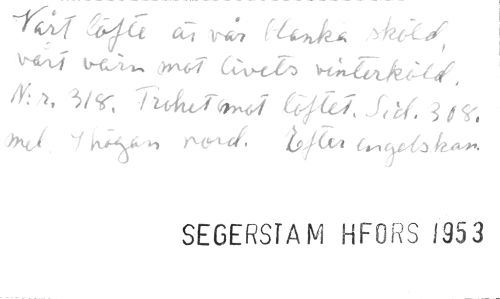 Vårt löfte är vår blanka sköld,
vårt värn mot livets vinterköld.
N:r. 318. Trohet mot löftet. Sid. 308.
mel. I högan nord. Efter engelskan.
SEGERSTAM HFORS 1953